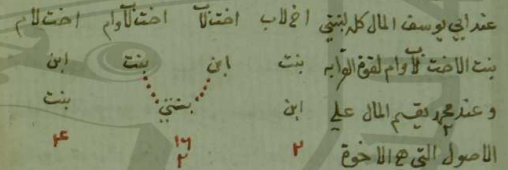 عند ابي يوسف المال كله لبنتي اخ لاب اخت لاب اخت لاب وام اخت لام
بنت الاخت لاب وام لقوة القرابه بنت ابن بنت ابن
وعند محمد يقسم المال علي ابن بنتي بنت
الاصول التي هم الاخوة ٢ ١٦ ٢ ۴